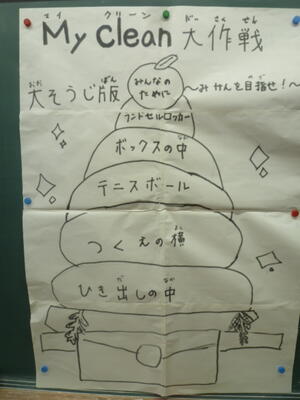 マイ クリーン だいさくせん
My Clean 大作戦
おお ばん
大そうじ版
～みかんを目指せ！～
みんなの
ために
ランドセルロッカー
ボックスの中
テニスボール
つくえの横
ひき出しの中